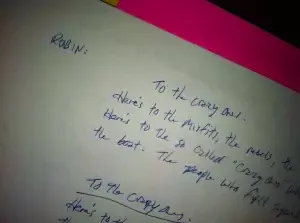 ROBIN:
To the crazy ones.
Here's to the misfits, the rebels, the
Here's to the so called "crazy ones"
the boat. The people who
To the crazy ones.
Here's to the
the